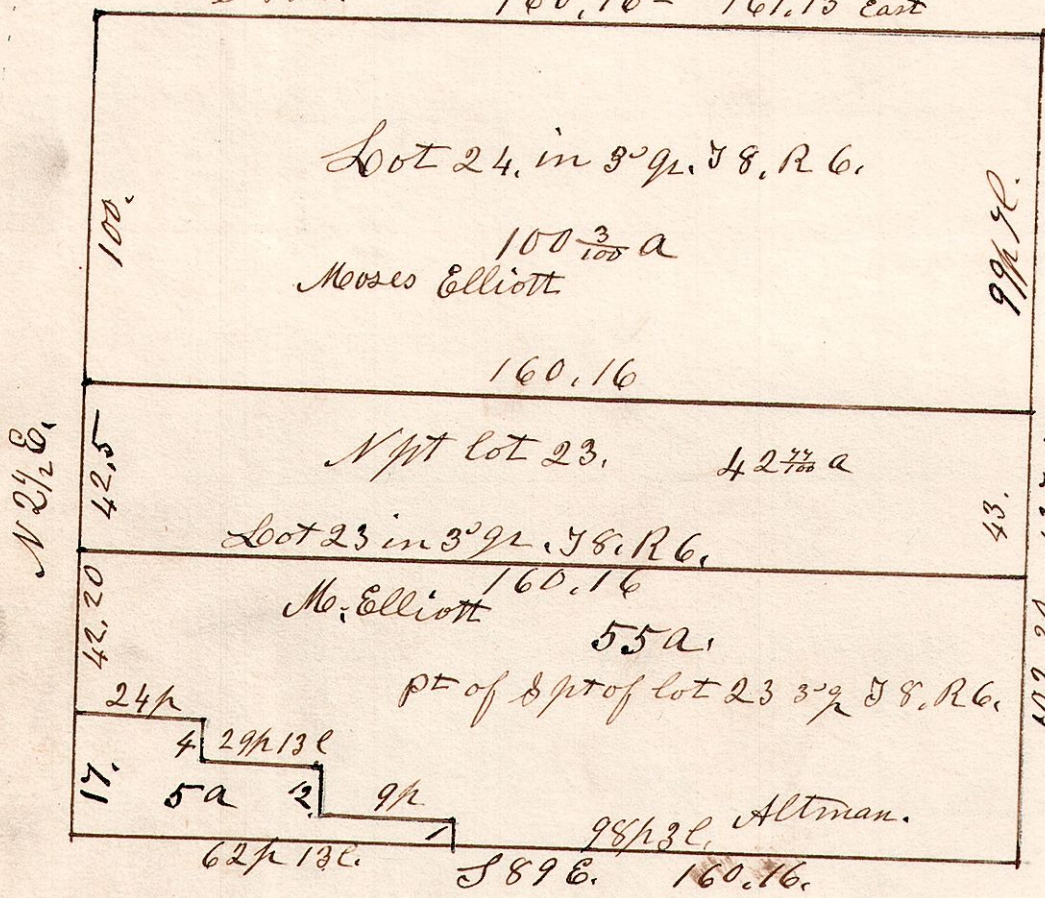 160.16 - 161.15 East
Lot 24. in 3ᵈ qr. T 8. R 6.
100 3/100 a
Moses Elliott
100.
99p 7l.
160.16
N 2½ E.
N pt lot 23.
42 77/100 a
42.5
43.
Lot 23 in 3ᵈ qr. T 8. R 6.
160.16
M. Elliott
42.20
55 a.
pt of S pt of lot 23 3ᵈ q T 8. R 6.
24p
4
29p 13l
17.
5 a
2
9p
1
Altman.
62p 13l.
98p3l.
S 89 E.
160.16.